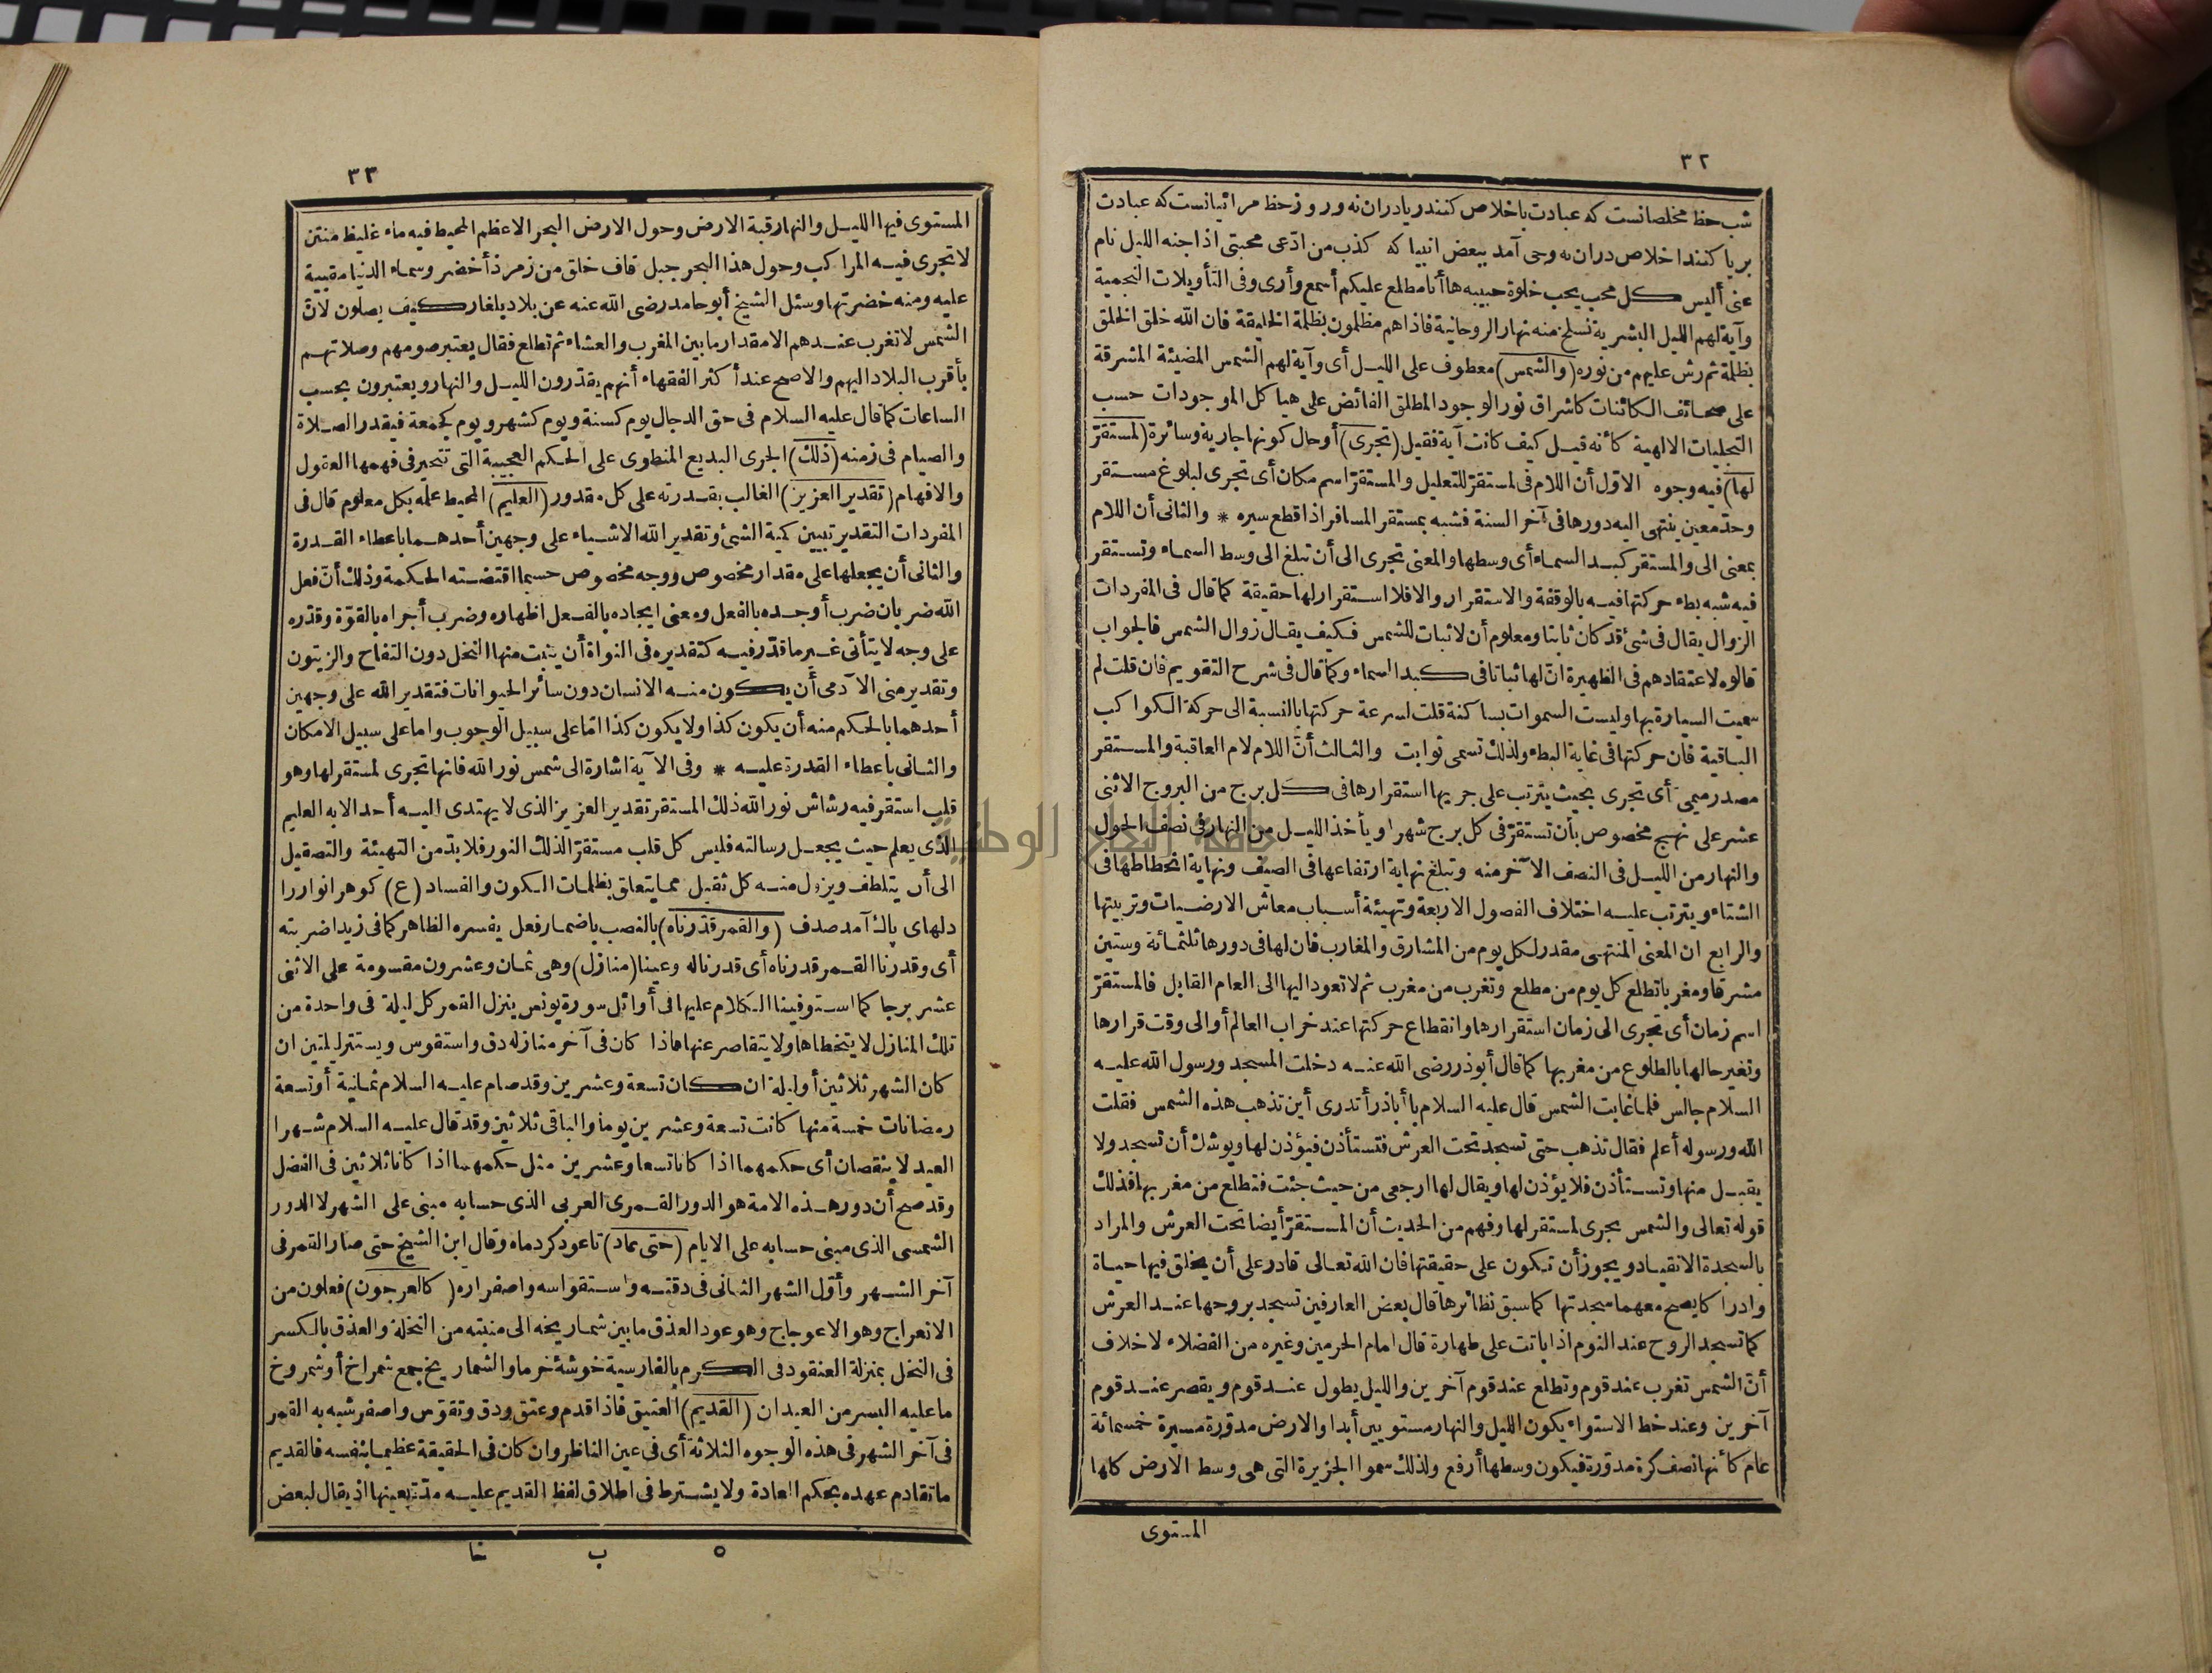 ٣٢
شب حظ مخلصانست كه عبادت باخلاص كنند ريا دران نه وروز حظ مرائيانست كه عبادت
بريا كنند اخلاص دران نه وحى آمد ببعض انبيا كه كذب من ادّعى محبتى اذا جنه الليل نام
عنى أليس كل محب يحب خلوة حبيبه ها أنا مطلع عليكم أسمع وأرى وفى التأويلات النجمية
وآية لهم الليل البشرية نسلخ منه نهار الروحانية فاذا هم مظلمون بظلمة الخليقة فان الله خلق الخلق
بظلمة ثم رش عليهم من نوره (والشمس) معطوف على الليل أى وآية لهم الشمس المضيئة المشرقة
على صحائف الكائنات كاشراق نور الوجود المطلق الفائض على هياكل الموجودات حسب
التجليات الالهية كأنه قيل كيف كانت آية فقيل (تجرى) أو حال كونها جارية وسائرة (لمستقرّ
لها) فيه وجوه الاوّل أن اللام فى لمستقرّ للتعليل والمستقرّ اسم مكان أى تجرى لبلوغ مستقر
وحدّ معين ينتهى اليه دورها فى آخر السنة فشبه بمستقر المسافر اذا قطع سيره * والثانى أن اللام
بمعنى الى والمستقر كبد السماء أى وسطها والمعنى تجرى الى أن تبلغ الى وسط السماء وتستقر
فيه شبه بطء حركتها فيه بالوقفة والاستقرار والا فلا استقرار لها حقيقة كما قال فى المفردات
الزوال يقال فى شئ قد كان ثابتا ومعلوم أن لا ثبات للشمس فكيف يقال زوال الشمس فالجواب
قالوه لاعتقادهم فى الظهيرة انّ لها ثباتا فى كبد السماء وكما قال فى شرح التقويم فان قلت لم
سميت السيارة بها وليست السموات بساكنة قلت لسرعة حركتها بالنسبة الى حركة الكواكب
الباقية فان حركتها فى غاية البطء ولذلك تسمى ثوابت والثالث أنّ اللام لام العاقبة والمستقر
مصدر ميمى أى تجرى بحيث يترتب على جريها استقرارها فى كل برج من البروج الاثنى
عشر على نهج مخصوص بأن تستقرّ فى كل برج شهرا ويأخذ الليل من النهار فى نصف الحول
والنهار من الليل فى النصف الآخر منه وتبلغ نهاية ارتفاعها فى الصيف ونهاية انحطاطها فى
الشتاء ويترتب عليه اختلاف الفصول الاربعة وتهيئة أسباب معاش الارضيات وتربيتها
والرابع ان المعنى المنتهى مقدر لكل يوم من المشارق والمغارب فان لها فى دورها ثلثمائة وستين
مشرقا ومغربا تطلع كل يوم من مطلع وتغرب من مغرب ثم لا تعود اليها الى العام القابل فالمستقرّ
اسم زمان أى تجرى الى زمان استقرارها وانقطاع حركتها عند خراب العالم أو الى وقت قرارها
وتغير حالها بالطلوع من مغربها كما قال أبو ذر رضى الله عنه دخلت المسجد ورسول الله عليه
السلام جالس فلما غابت الشمس قال عليه السلام يا أباذر أتدرى أين تذهب هذه الشمس فقلت
الله ورسوله أعلم فقال تذهب حتى تسجد تحت العرش فتستأذن فيؤذن لها ويوشك أن تسجد ولا
يقبل منها وتستأذن فلا يؤذن لها ويقال لها ارجعى من حيث جئت فتطلع من مغربها فذلك
قوله تعالى والشمس تجرى لمستقر لها وفهم من الحديث أن المستقرّ أيضا تحت العرش والمراد
بالسجدة الانقياد ويجوز أن تكون على حقيقتها فان الله تعالى قادر على أن يخلق فيها حياة
وادراكا يصح معهما سجدتها كما سبق نظائرها قال بعض العارفين تسجد بروحها عند العرش
كما تسجد الروح عند النوم اذا باتت على طهارة قال امام الحرمين وغيره من الفضلاء لا خلاف
أنّ الشمس تغرب عند قوم وتطلع عند قوم آخرين والليل يطول عند قوم ويقصر عند قوم
آخرين وعند خط الاستواء يكون الليل والنهار مستويين أبدا والارض مدوّرة مسيرة خمسمائة
عام كأنها نصف كرة مدوّرة فيكون وسطها أرفع ولذلك سموا الجزيرة التى هى وسط الارض كلها
المستوى
٣٣
المستوى فيها الليل والنهار قبة الارض وحول الارض البحر الاعظم المحيط فيه ماء غليظ منتن
لا تجرى فيه المراكب وحول هذا البحر جبل قاف خلق من زمرذ أخضر وسماء الدنيا مقببة
عليه ومنه خضرتها وسئل الشيخ أبو حامد رضى الله عنه عن بلاد بلغار كيف يصلون لانّ
الشمس لا تغرب عندهم الا مقدار ما بين المغرب والعشاء ثم تطلع فقال يعتبر صومهم وصلاتهم
بأقرب البلاد اليهم والاصح عند أكثر الفقهاء أنهم يقدّرون الليل والنهار ويعتبرون بحسب
الساعات كما قال عليه السلام فى حق الدجال يوم كسنة ويوم كشهر ويوم كجمعة فيقدر الصلاة
والصيام فى زمنه (ذلك) الجرى البديع المنطوى على الحكم العجيبة التى تتحير فى فهمها العقول
والافهام (تقدير العزيز) الغالب بقدرته على كل مقدور (العليم) المحيط علمه بكل معلوم قال فى
المفردات التقدير تبيين كمية الشئ وتقدير الله الاشياء على وجهين أحدهما باعطاء القدرة
والثانى أن يجعلها على مقدار مخصوص ووجه مخصوص حسبما اقتضته الحكمة وذلك أنّ فعل
الله ضربان ضرب أوجده بالفعل ومعنى ايجاده بالفعل اظهاره وضرب أجراه بالقوّة وقدّره
على وجه لا يتأتى غير ما قدّر فيه كتقديره فى النواة أن ينبت منها النخل دون التفاح والزيتون
وتقدير منى الآدمى أن يكون منه الانسان دون سائر الحيوانات فتقدير الله على وجهين
أحدهما بالحكم منه أن يكون كذا ولا يكون كذا امّا على سبيل الوجوب واما على سبيل الامكان
والثانى باعطاء القدرة عليه * وفى الآية اشارة الى شمس نور الله فانها تجرى لمستقر لها وهو
قلب استقر فيه رشاش نور الله ذلك المستقر تقدير العزيز الذى لا يهتدى اليه أحد الا به العليم
الذى يعلم حيث يجعل رسالته فليس كل قلب مستقرّ الذلك النور فلا بدّ من التهيئة والتصقيل
الى أن يتلطف ويزول منه كل ثقيل مما يتعلق بظلمات الكون والفساد (ع) كوهر انوار را
دلهاى پاك آمد صدف (والقمر قدّرناه) بالنصب باضمار فعل يفسره الظاهر كما فى زيدا ضربته
أى وقدرنا القمر قدرناه أى قدرنا له وعينا (منازل) وهى ثمان وعشرون مقسومة على الاثنى
عشر برجا كما استوفينا الكلام عليها فى أوائل سورة يونس ينزل القمر كل ليلة فى واحدة من
تلك المنازل لا يتخطاها ولا يتقاصر عنها فاذا كان فى آخر منازله دق واستقوس ويستتر ليلتين ان
كان الشهر ثلاثين أو ليلة ان كان تسعة وعشرين وقد صام عليه السلام ثمانية أو تسعة
رمضانات خمسة منها كانت تسعة وعشرين يوما والباقى ثلاثين وقد قال عليه السلام شهرا
العيد لا ينقصان أى حكمهما اذا كانا تسعا وعشرين مثل حكمهما اذا كانا ثلاثين فى الفضل
وقد صح أن دور هذه الامة هو الدور القمرى العربى الذى حسابه مبنى على الشهر لا الدور
الشمسى الذى مبنى حسابه على الايام (حتى عاد) تا عود كرد ماه وقال ابن الشيخ حتى صار القمر فى
آخر الشهر وأوّل الشهر الثانى فى دقته واستقواسه واصفراره (كالعرجون) فعلون من
الانعراج وهو الاعوجاج وهو عود العذق ما بين شماريخه الى منبته من النخلة والعذق بالكسر
فى النخل بمنزلة العنقود فى الكرم بالفارسية خوشۀ خرما والشماريخ جمع شمراخ أو شمروخ
ما عليه البسر من العيدان (القديم) العتيق فاذا قدم وعتق ودق وتقوّس واصفر شبه به القمر
فى آخر الشهر فى هذه الوجوه الثلاثة أى فى عين الناظر وان كان فى الحقيقة عظيما بنفسه فالقديم
ما تقادم عهده بحكم العادة ولا يشترط فى اطلاق لفظ القديم عليه مدّة بعينها اذ يقال لبعض
٥ ب خا
جامعة النجاح الوطنية